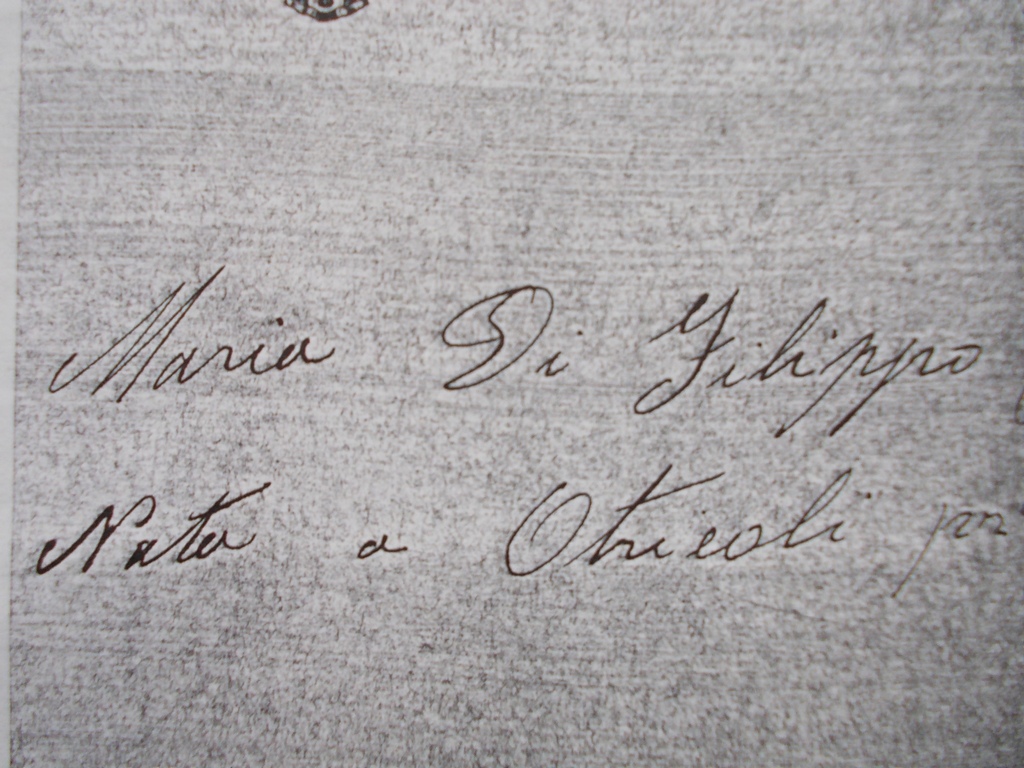 Maria Di Filippo
Nata a Otricoli